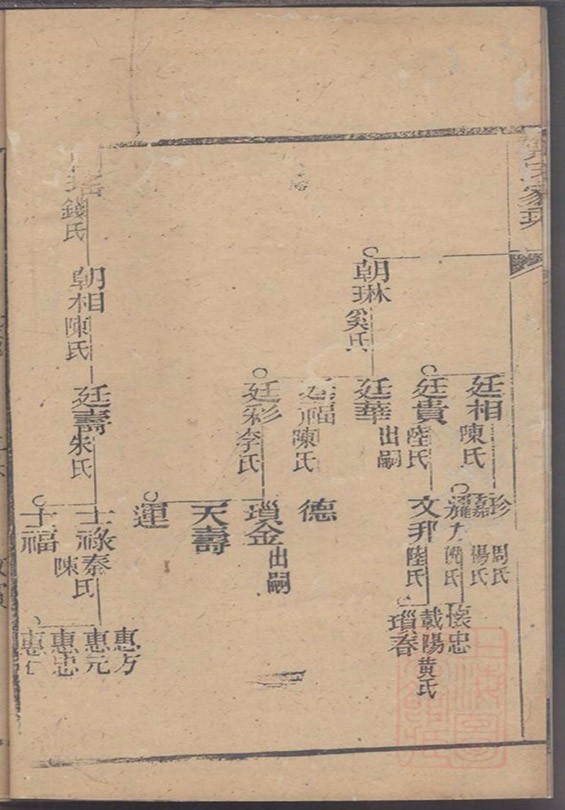 朝琳奚氏
廷相陳氏
廷貴陸氏
廷華出嗣
廷福陳氏
廷彩李氏
珍周氏
嘉楊氏
文邦陸氏
德
瑣金出嗣
天壽
運
懷忠
戴陽黄氏
瑣春
瑤錢氏
朝相陳氏
廷壽朱氏
士祿秦氏陳
士福
惠方
惠元
惠忠
惠仁